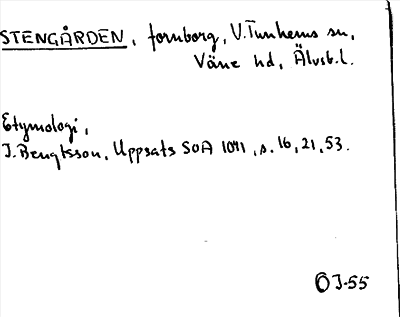 STENGÅRDEN, fornborg, V.Tunhems sn,
Väne hd, Älvsb.l.
Etymologi,
J. Bengtsson, Uppsats SOA 1041, s. 16, 21, 53.
ÖJ-55